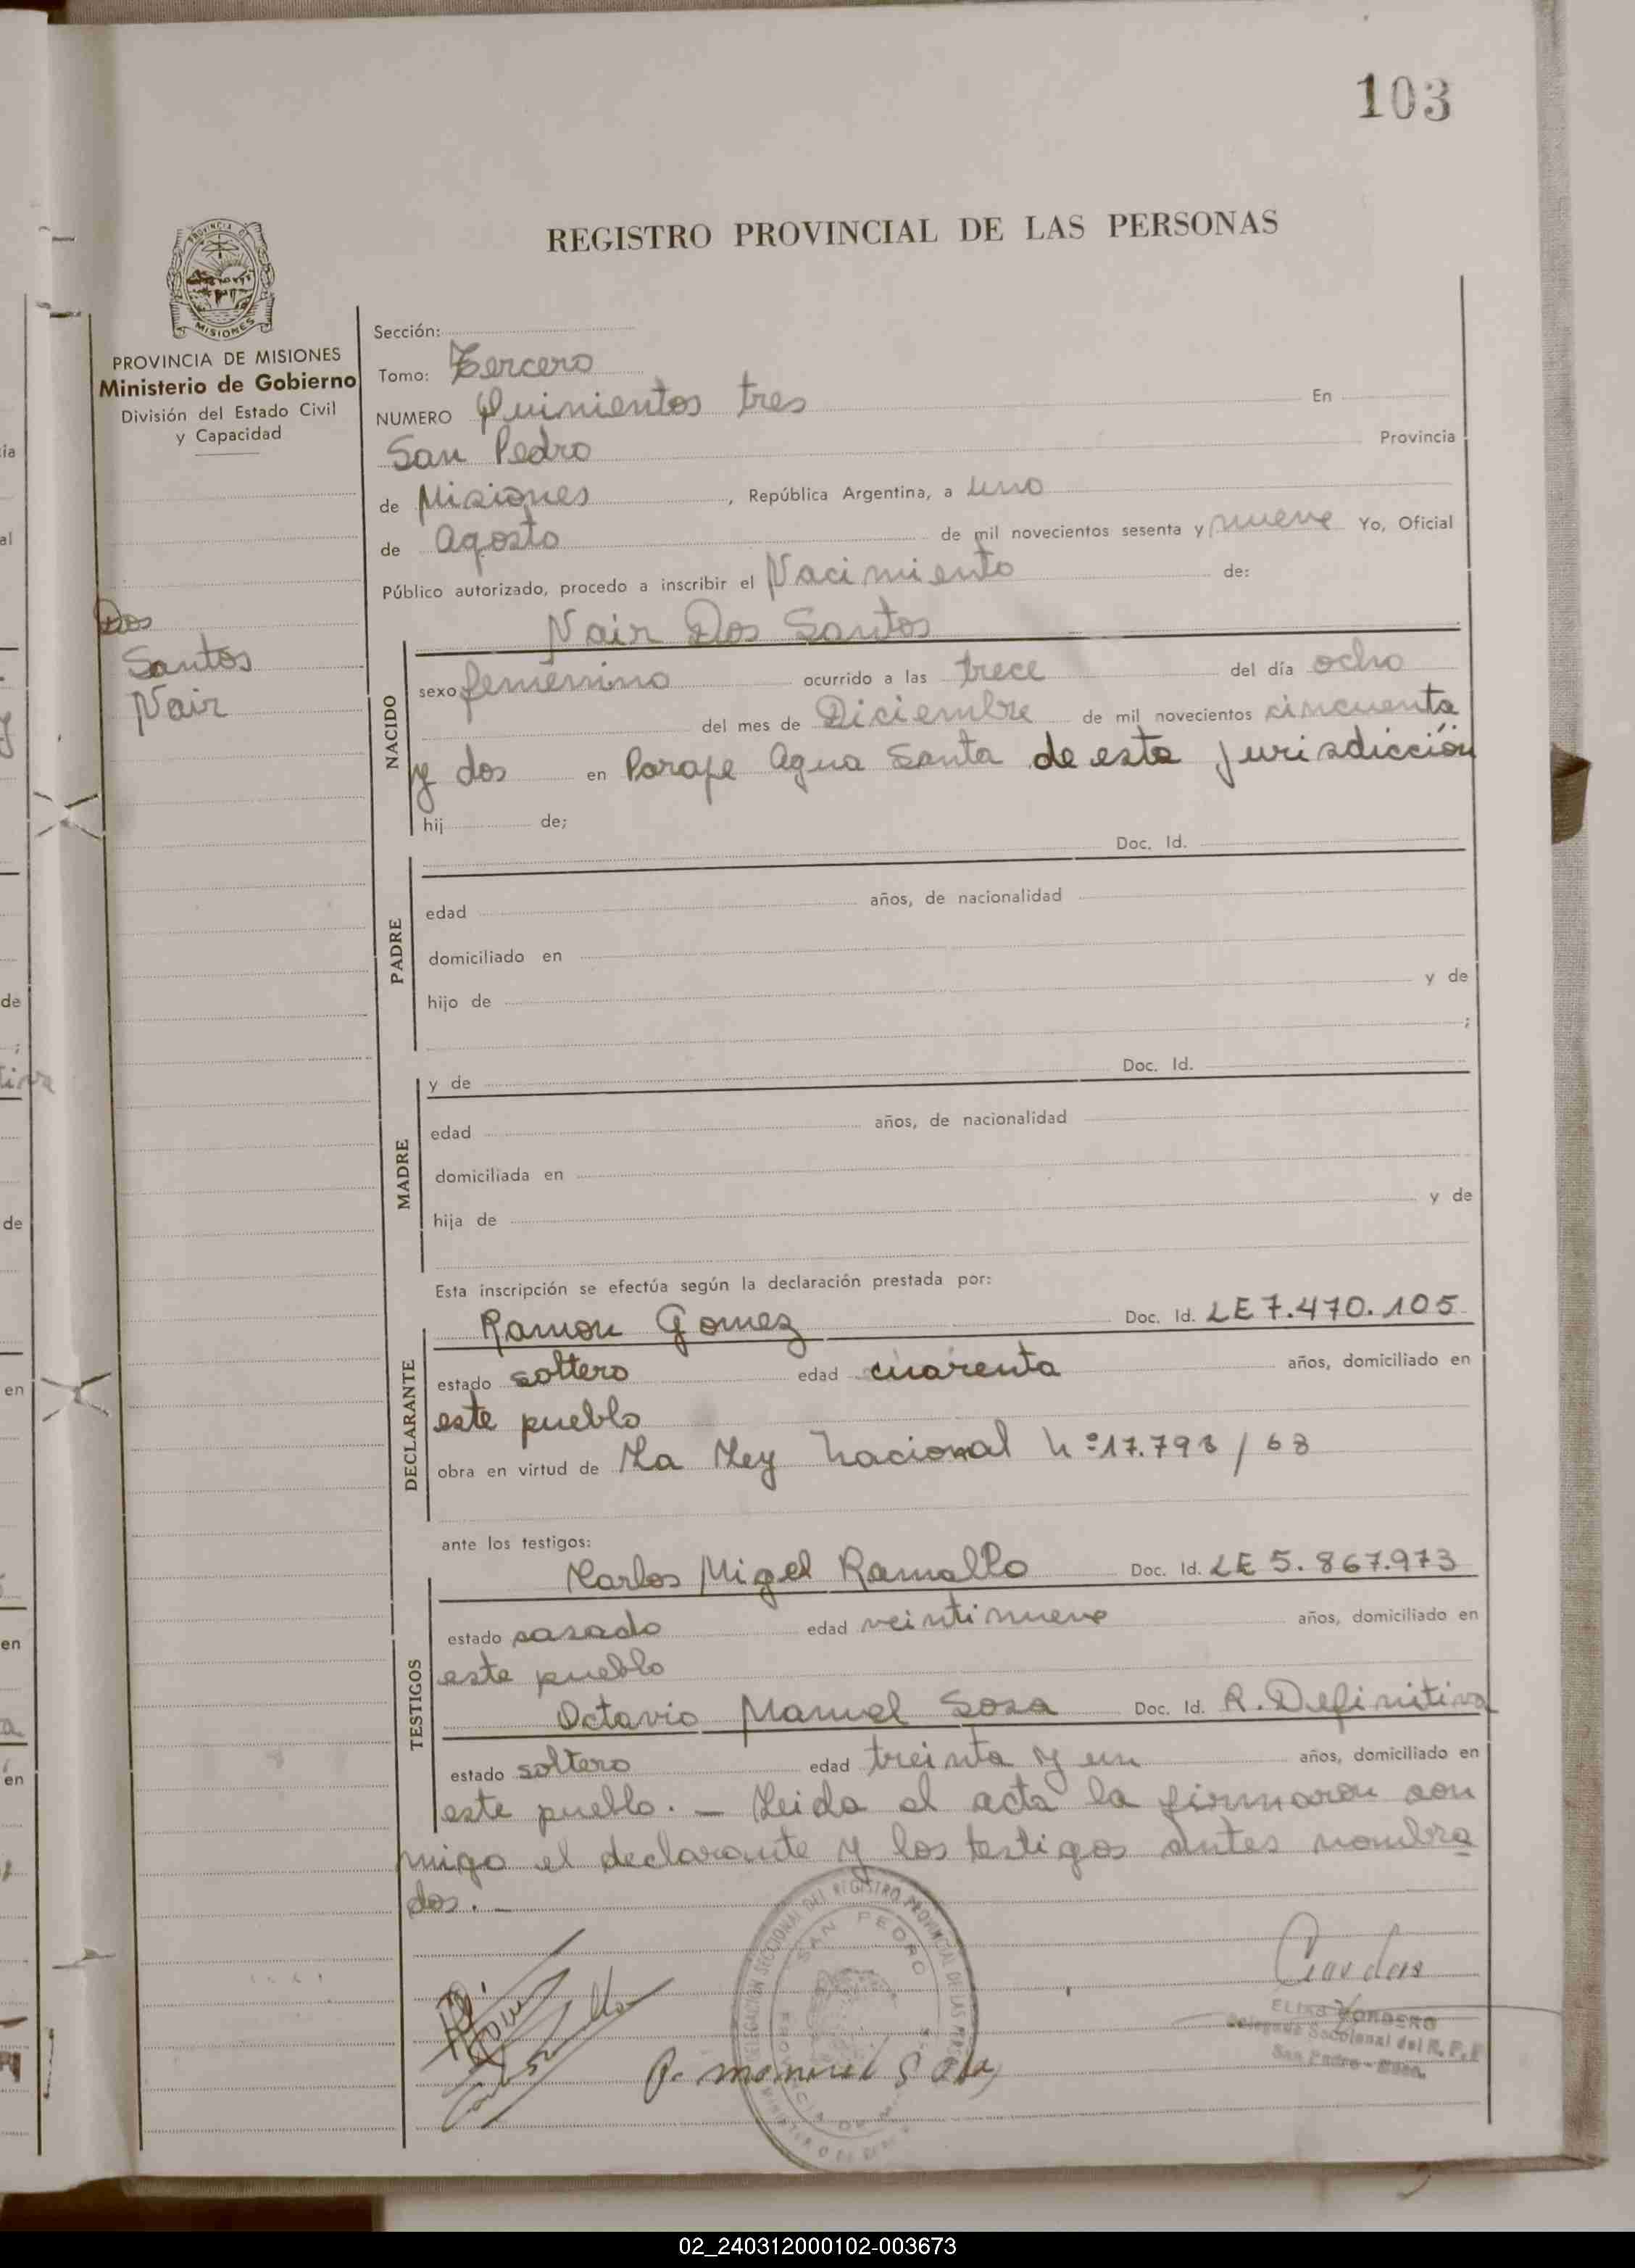 103
REGISTRO PROVINCIAL DE LAS PERSONAS
PROVINCIA DE MISIONES
Ministerio de Gobierno
División del Estado Civil
y Capacidad
Dos
Santos
Nair
Sección:
Tomo: Tercero
NUMERO Quinientos tres En
San Pedro Provincia
de Misiones, República Argentina, a uno
de Agosto de mil novecientos sesenta y nueve Yo, Oficial
Público autorizado, procedo a inscribir el Nacimiento de:
Nair Dos Santos
NACIDO
sexo femenino ocurrido a las trece del día ocho
del mes de Diciembre de mil novecientos cincuenta
y dos en Paraje Agua Santa de esta jurisdicción
hij de;
Doc. Id.
PADRE
edad años, de nacionalidad
domiciliado en
hijo de y de
;
y de Doc. Id.
MADRE
edad años, de nacionalidad
domiciliada en
hija de y de
Esta inscripción se efectúa según la declaración prestada por:
Ramon Gomez Doc. Id. LE 7.470.105
DECLARANTE
estado soltero edad cuarenta años, domiciliado en
este pueblo
obra en virtud de La Ley Nacional Nº 17.793/68
ante los testigos:
Carlos Migel Ramallo Doc. Id. LE 5.867.973
TESTIGOS
estado casado edad veintinueve años, domiciliado en
este pueblo
Octavio Manuel Sosa Doc. Id. R. Definitiva
estado soltero edad treinta y un años, domiciliado en
este pueblo. – Leida el acta la firmaron con
migo el declarante y los testigos antes nombra
dos. –
SAN PEDRO
San Pedro - Mnes.
02_240312000102-003673